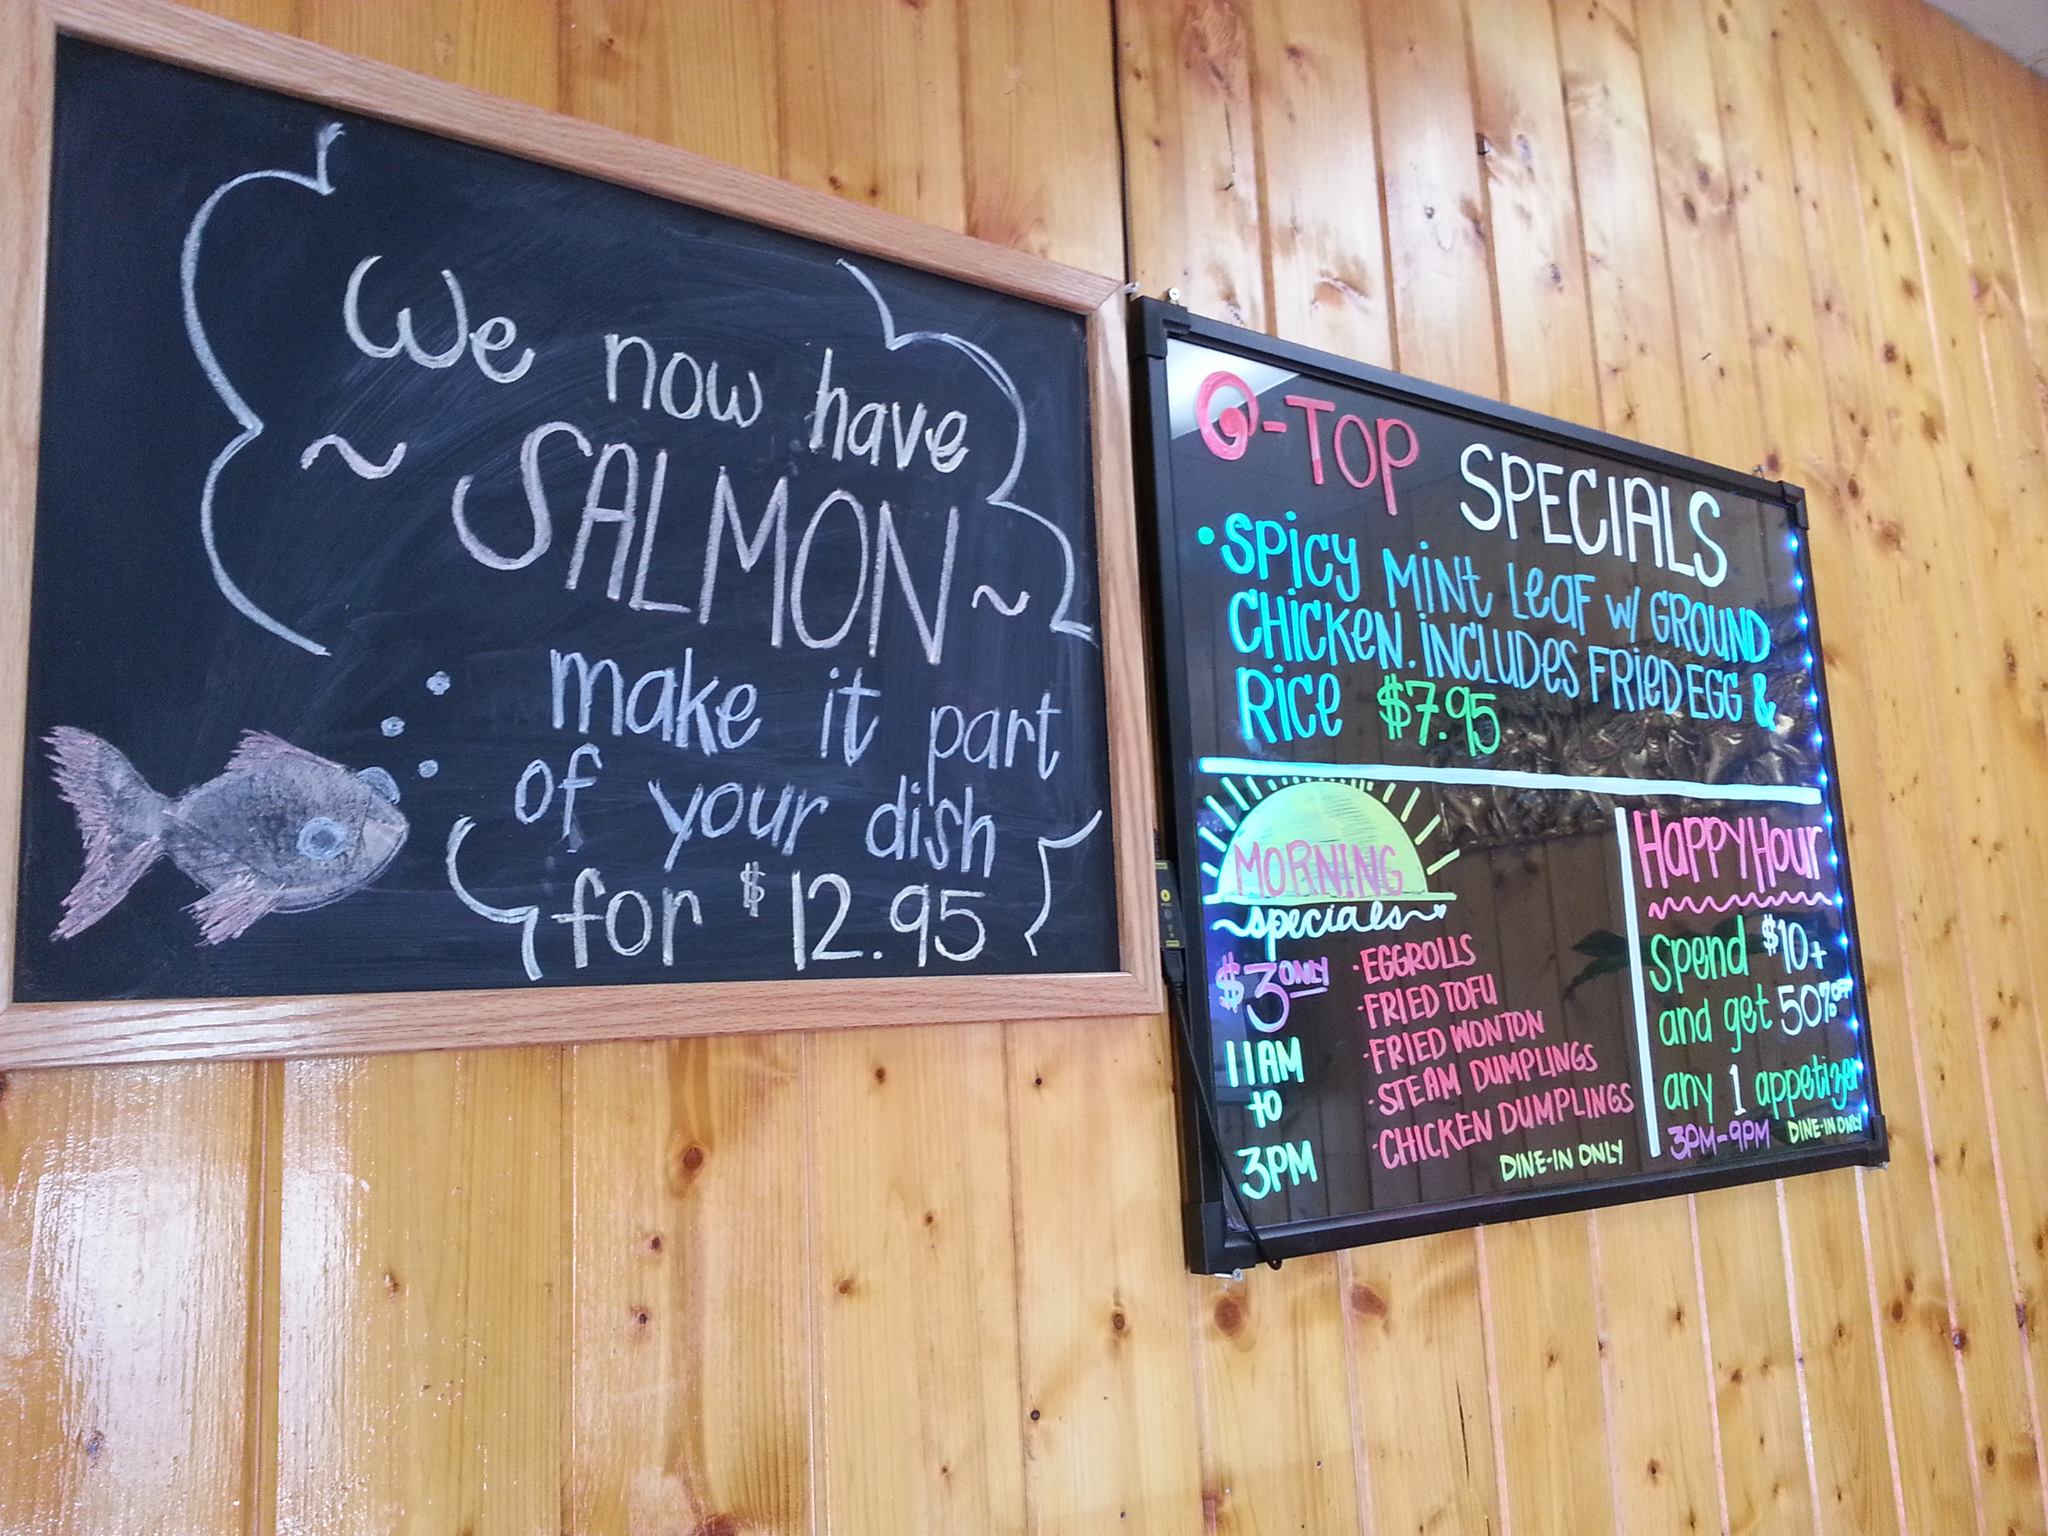 We now have
~ SALMON ~
make it part
of your dish
for $12.95
G-TOP SPECIALS
• SPICY MINT LEAF W/ GROUND
CHICKEN. INCLUDES FRIED EGG &
RICE $7.95
MORNING
~specials~
$3 ONLY
11AM
to
3PM
• EGGROLLS
• FRIED TOFU
• FRIED WONTON
• STEAM DUMPLINGS
• CHICKEN DUMPLINGS
DINE-IN ONLY
HAPPY HOUR
Spend $10+
and get 50% off
any 1 appetizer
3PM-9PM DINE-IN ONLY